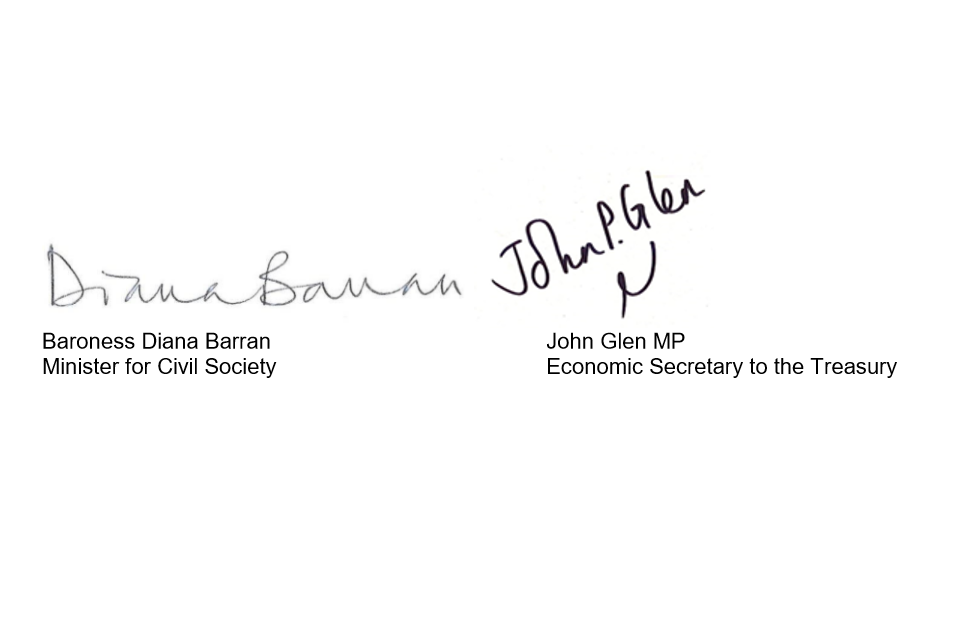 Diana Barran
John P. Glen
Baroness Diana Barran
Minister for Civil Society
John Glen MP
Economic Secretary to the Treasury